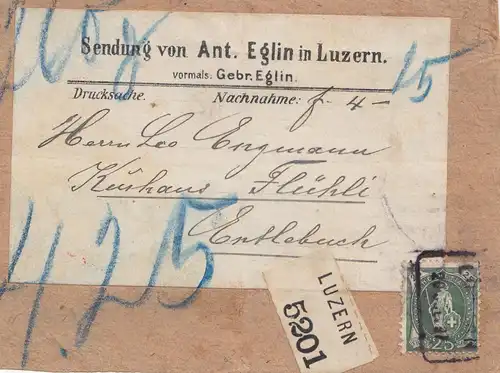 Sendung von Ant. Eglin in Luzern.
vormals: Gebr. Eglin.
15
Drucksache. Nachnahme: f. 4 –
Herrn Leo Engmann
Kurhaus Flühli
Entlebuch
4.25
LUZERN
5201
25